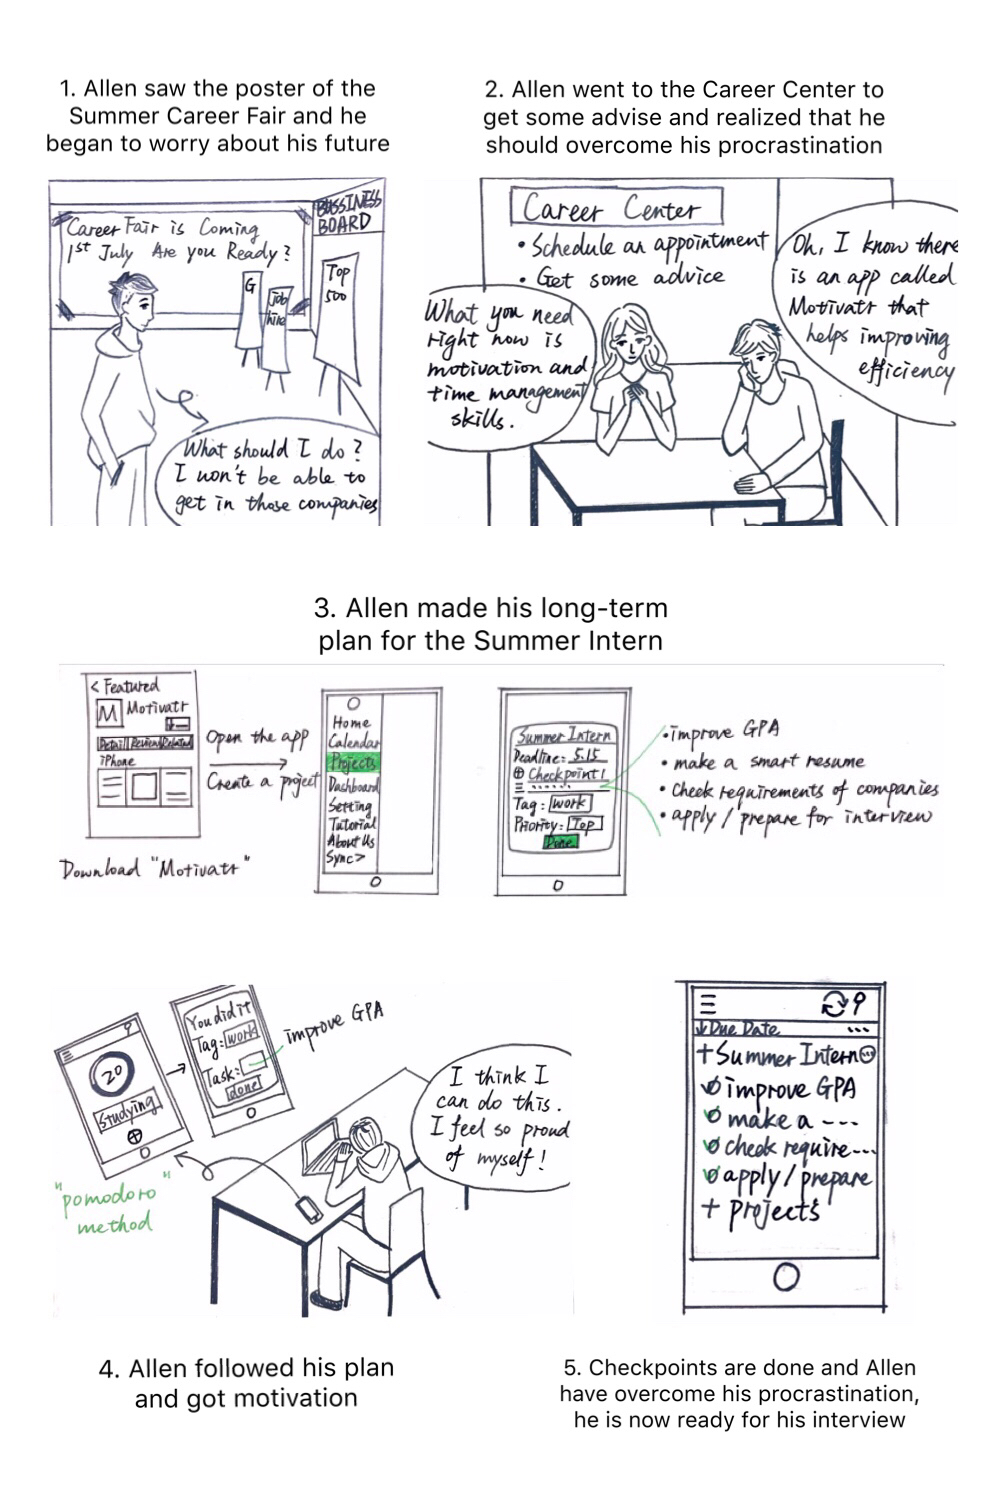 1. Allen saw the poster of the
Summer Career Fair and he
began to worry about his future
BUSSINESS
BOARD
Career Fair is Coming
1st July Are you Ready?
G
job
hire
Top
500
What should I do?
I won't be able to
get in those companies
2. Allen went to the Career Center to
get some advise and realized that he
should overcome his procrastination
Career Center
• Schedule an appointment
• Get some advice
What you need
right now is
motivation and
time management
skills.
Oh, I know there
is an app called
Motivatr that
helps improving
efficiency
3. Allen made his long-term
plan for the Summer Intern
< Featured
M Motivatr
Detail Review Related
iPhone
Download "Motivatr"
Open the app
Create a project
Home
Calendar
Projects
Dashboard
Setting
Tutorial
About Us
Sync>
Summer Intern
Deadline: 5.15
⊕ Checkpoint 1
Tag: work
Priority: Top
Done
• improve GPA
• make a smart resume
• Check requirements of companies
• apply / prepare for interview
20
Studying
"pomodoro"
method
You did it
Tag: work
Task:
done
improve GPA
I think I
can do this.
I feel so proud
of myself!
4. Allen followed his plan
and got motivation
↓Due Date ...
+Summer Intern
improve GPA
make a ---
check require---
apply / prepare
+ projects
5. Checkpoints are done and Allen
have overcome his procrastination,
he is now ready for his interview